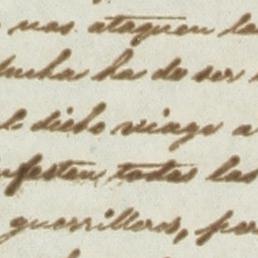 nos ataquen la
lucha ha de ser
dicho viage a
festan todas las
guerrilleros, par